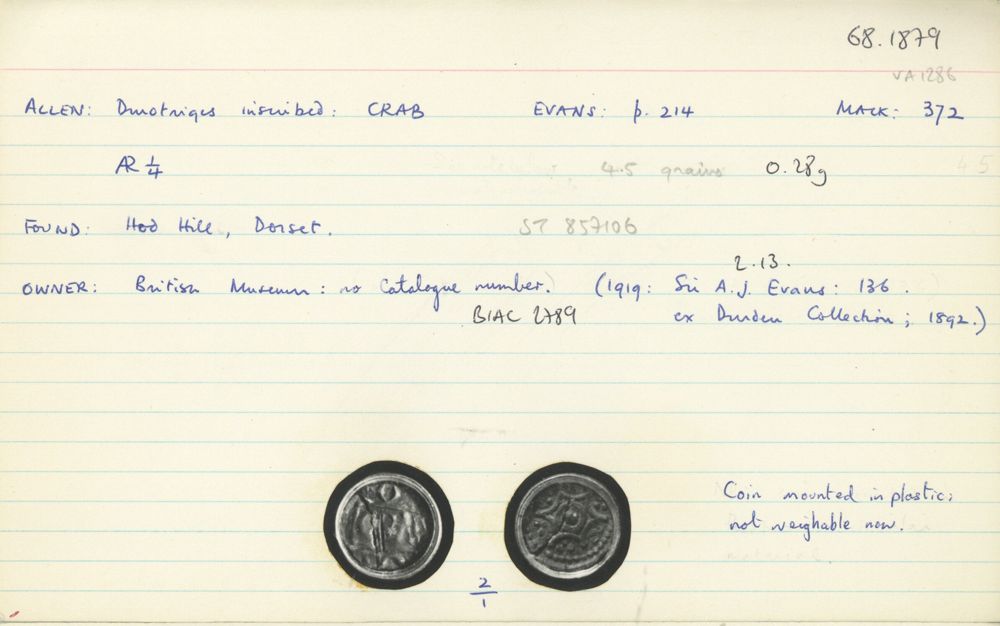 68.1879
VA1286
ALLEN: Durotriges inscribed: CRAB EVANS: p. 214 MACK: 372
AR 1/4 4.5 grains 0.28g 4.5
FOUND: Hod Hill, Dorset. ST 857106
2.13.
OWNER: British Museum: no Catalogue number. (1919: Sir A.J. Evans: 136.
BIAC 2789 ex Durden Collection; 1892.)
Coin mounted in plastic:
not weighable now.
2/1